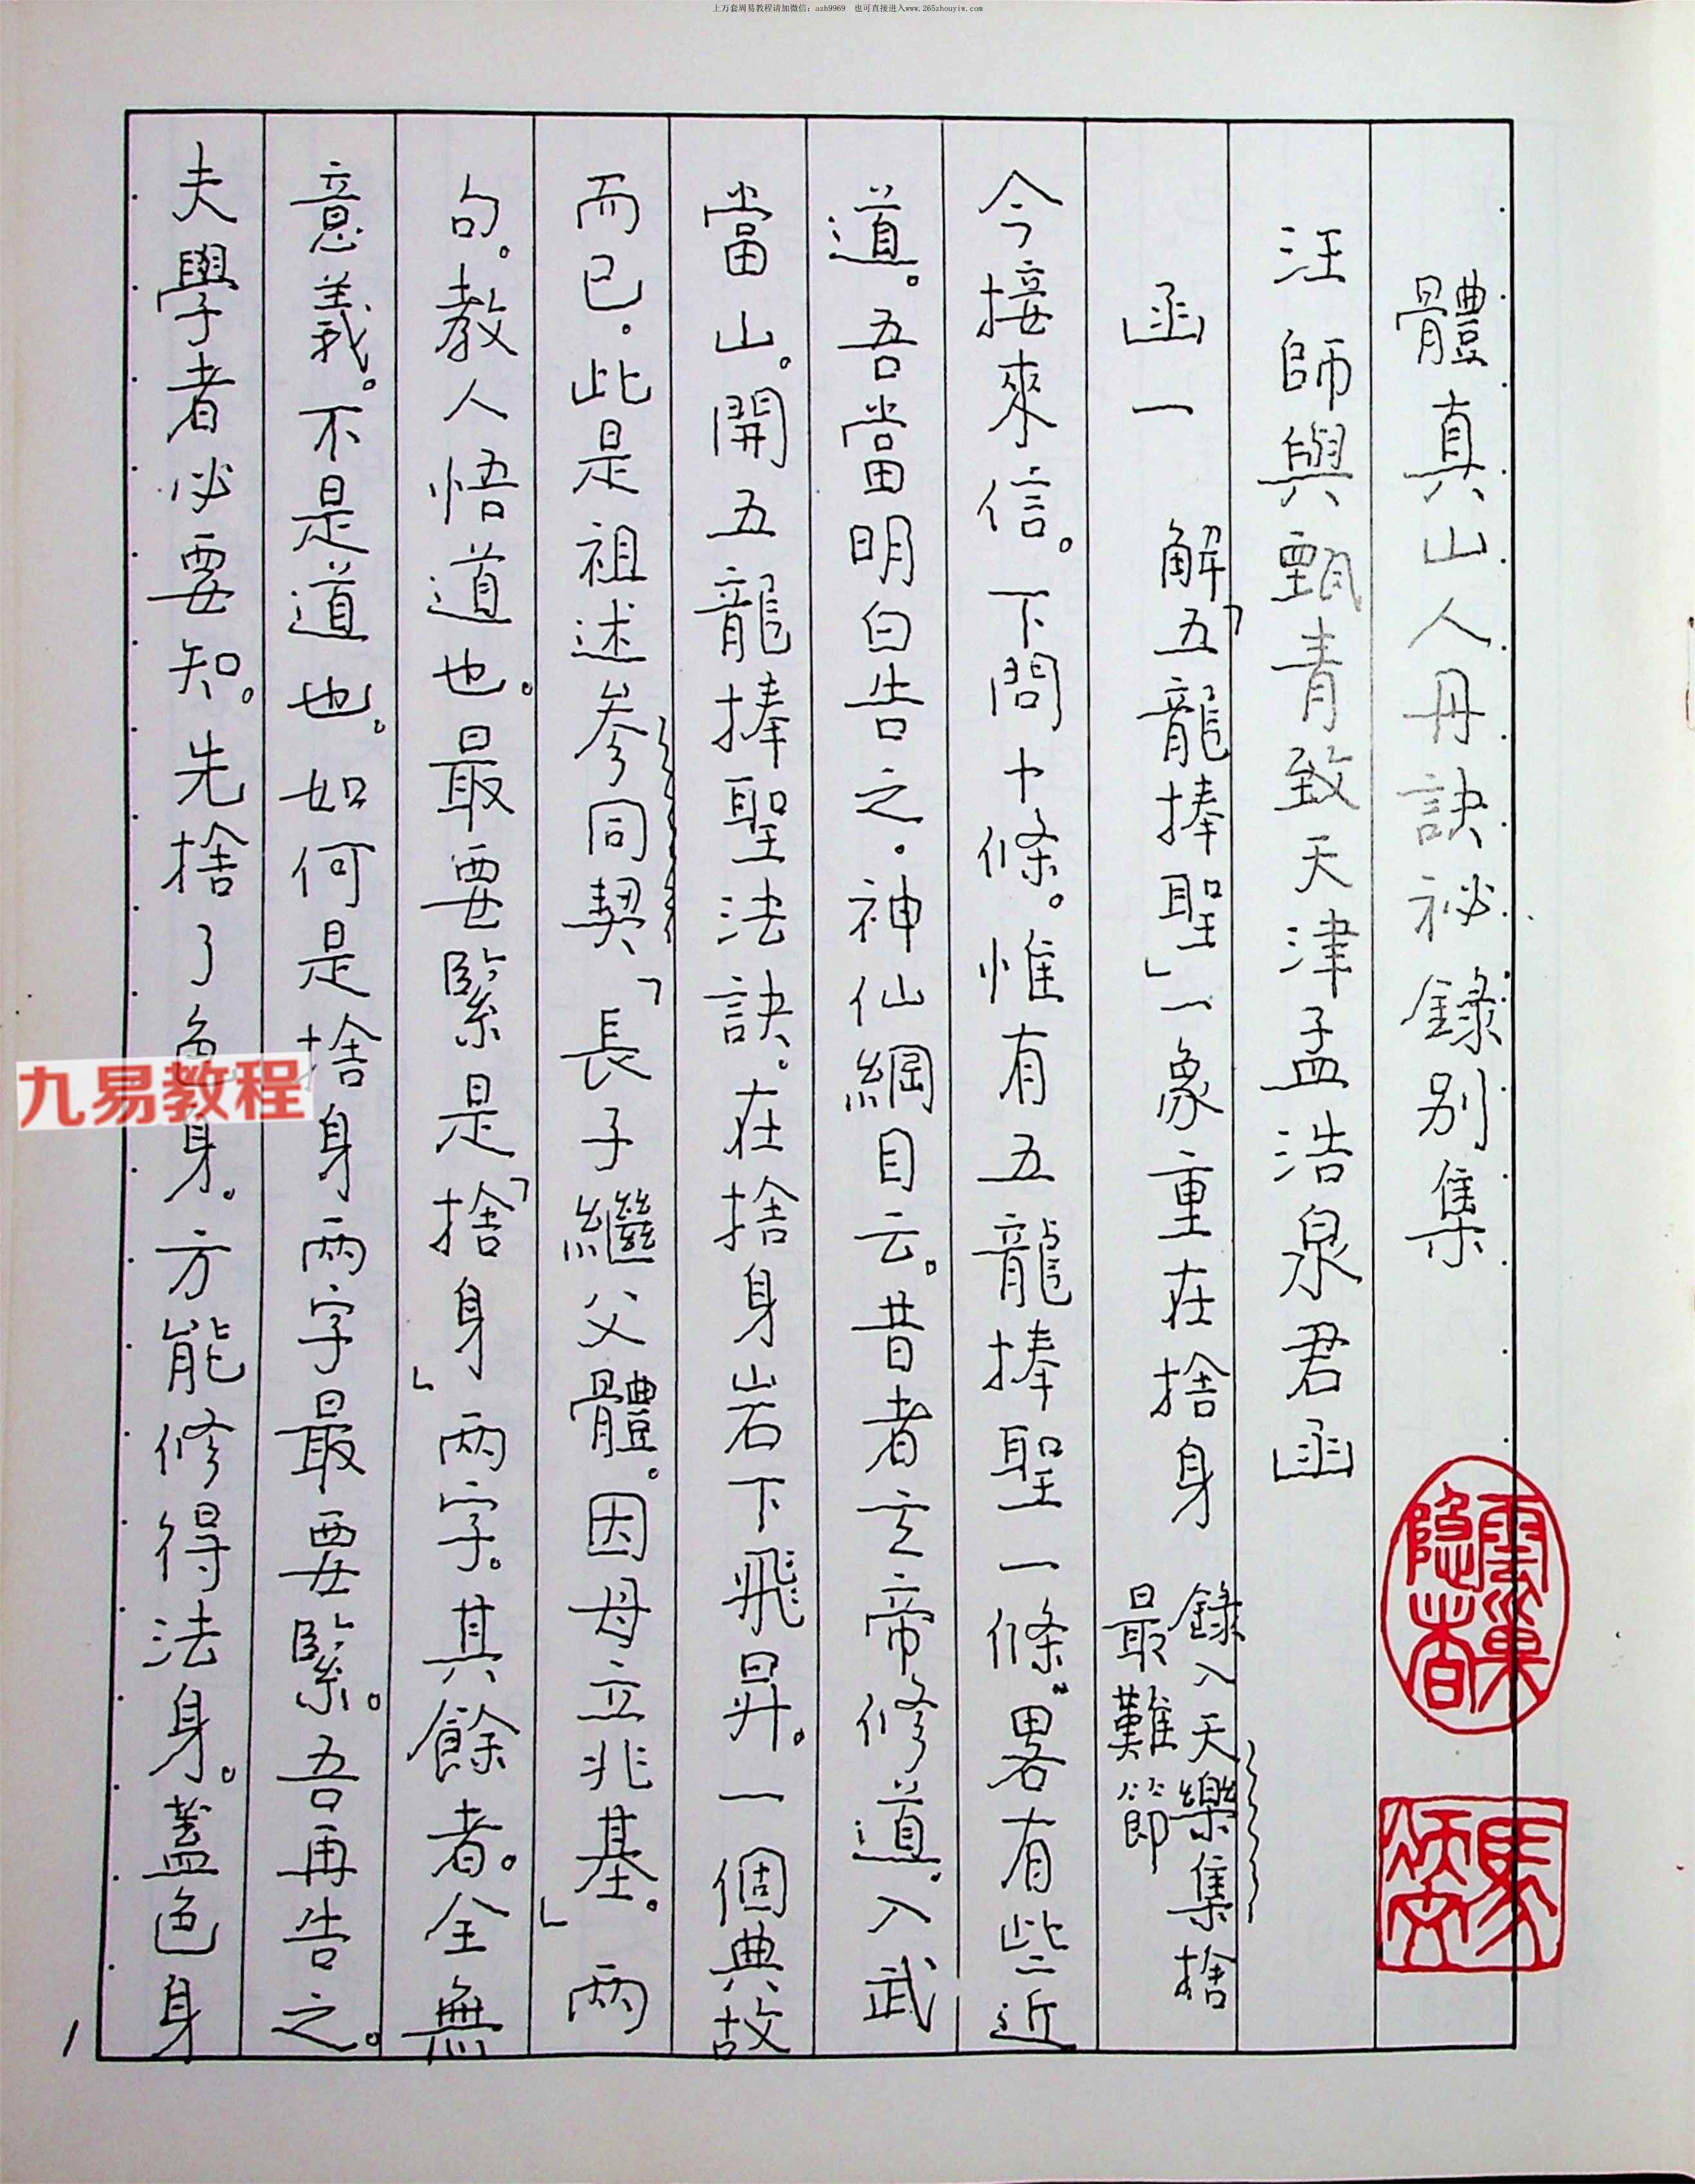 上万套周易教程请加微信：azh9969　也可直接进入www.265zhouyiw.com
體真山人丹訣祕錄別集
汪師與甄青致天津孟浩泉君函
函一　解「五龍捧聖」一象重在捨身　錄入天樂集捨
最難節
今接來信。下問十條。惟有五龍捧聖一條。畧有些近
道。吾當明白告之。神仙綱目云。昔者玄帝修道。入武
當山。開五龍捧聖法訣。在捨身岩下飛昇。一個典故
而已。此是祖述參同契「長子繼父體。因母立兆基。」兩
句。教人悟道也。最要緊是「捨身」兩字。其餘者。全無
意義。不是道也。如何是捨身兩字最要緊。吾再告之。
夫學者必要知。先捨了色身。方能修得法身。蓋色身
九易教程
1